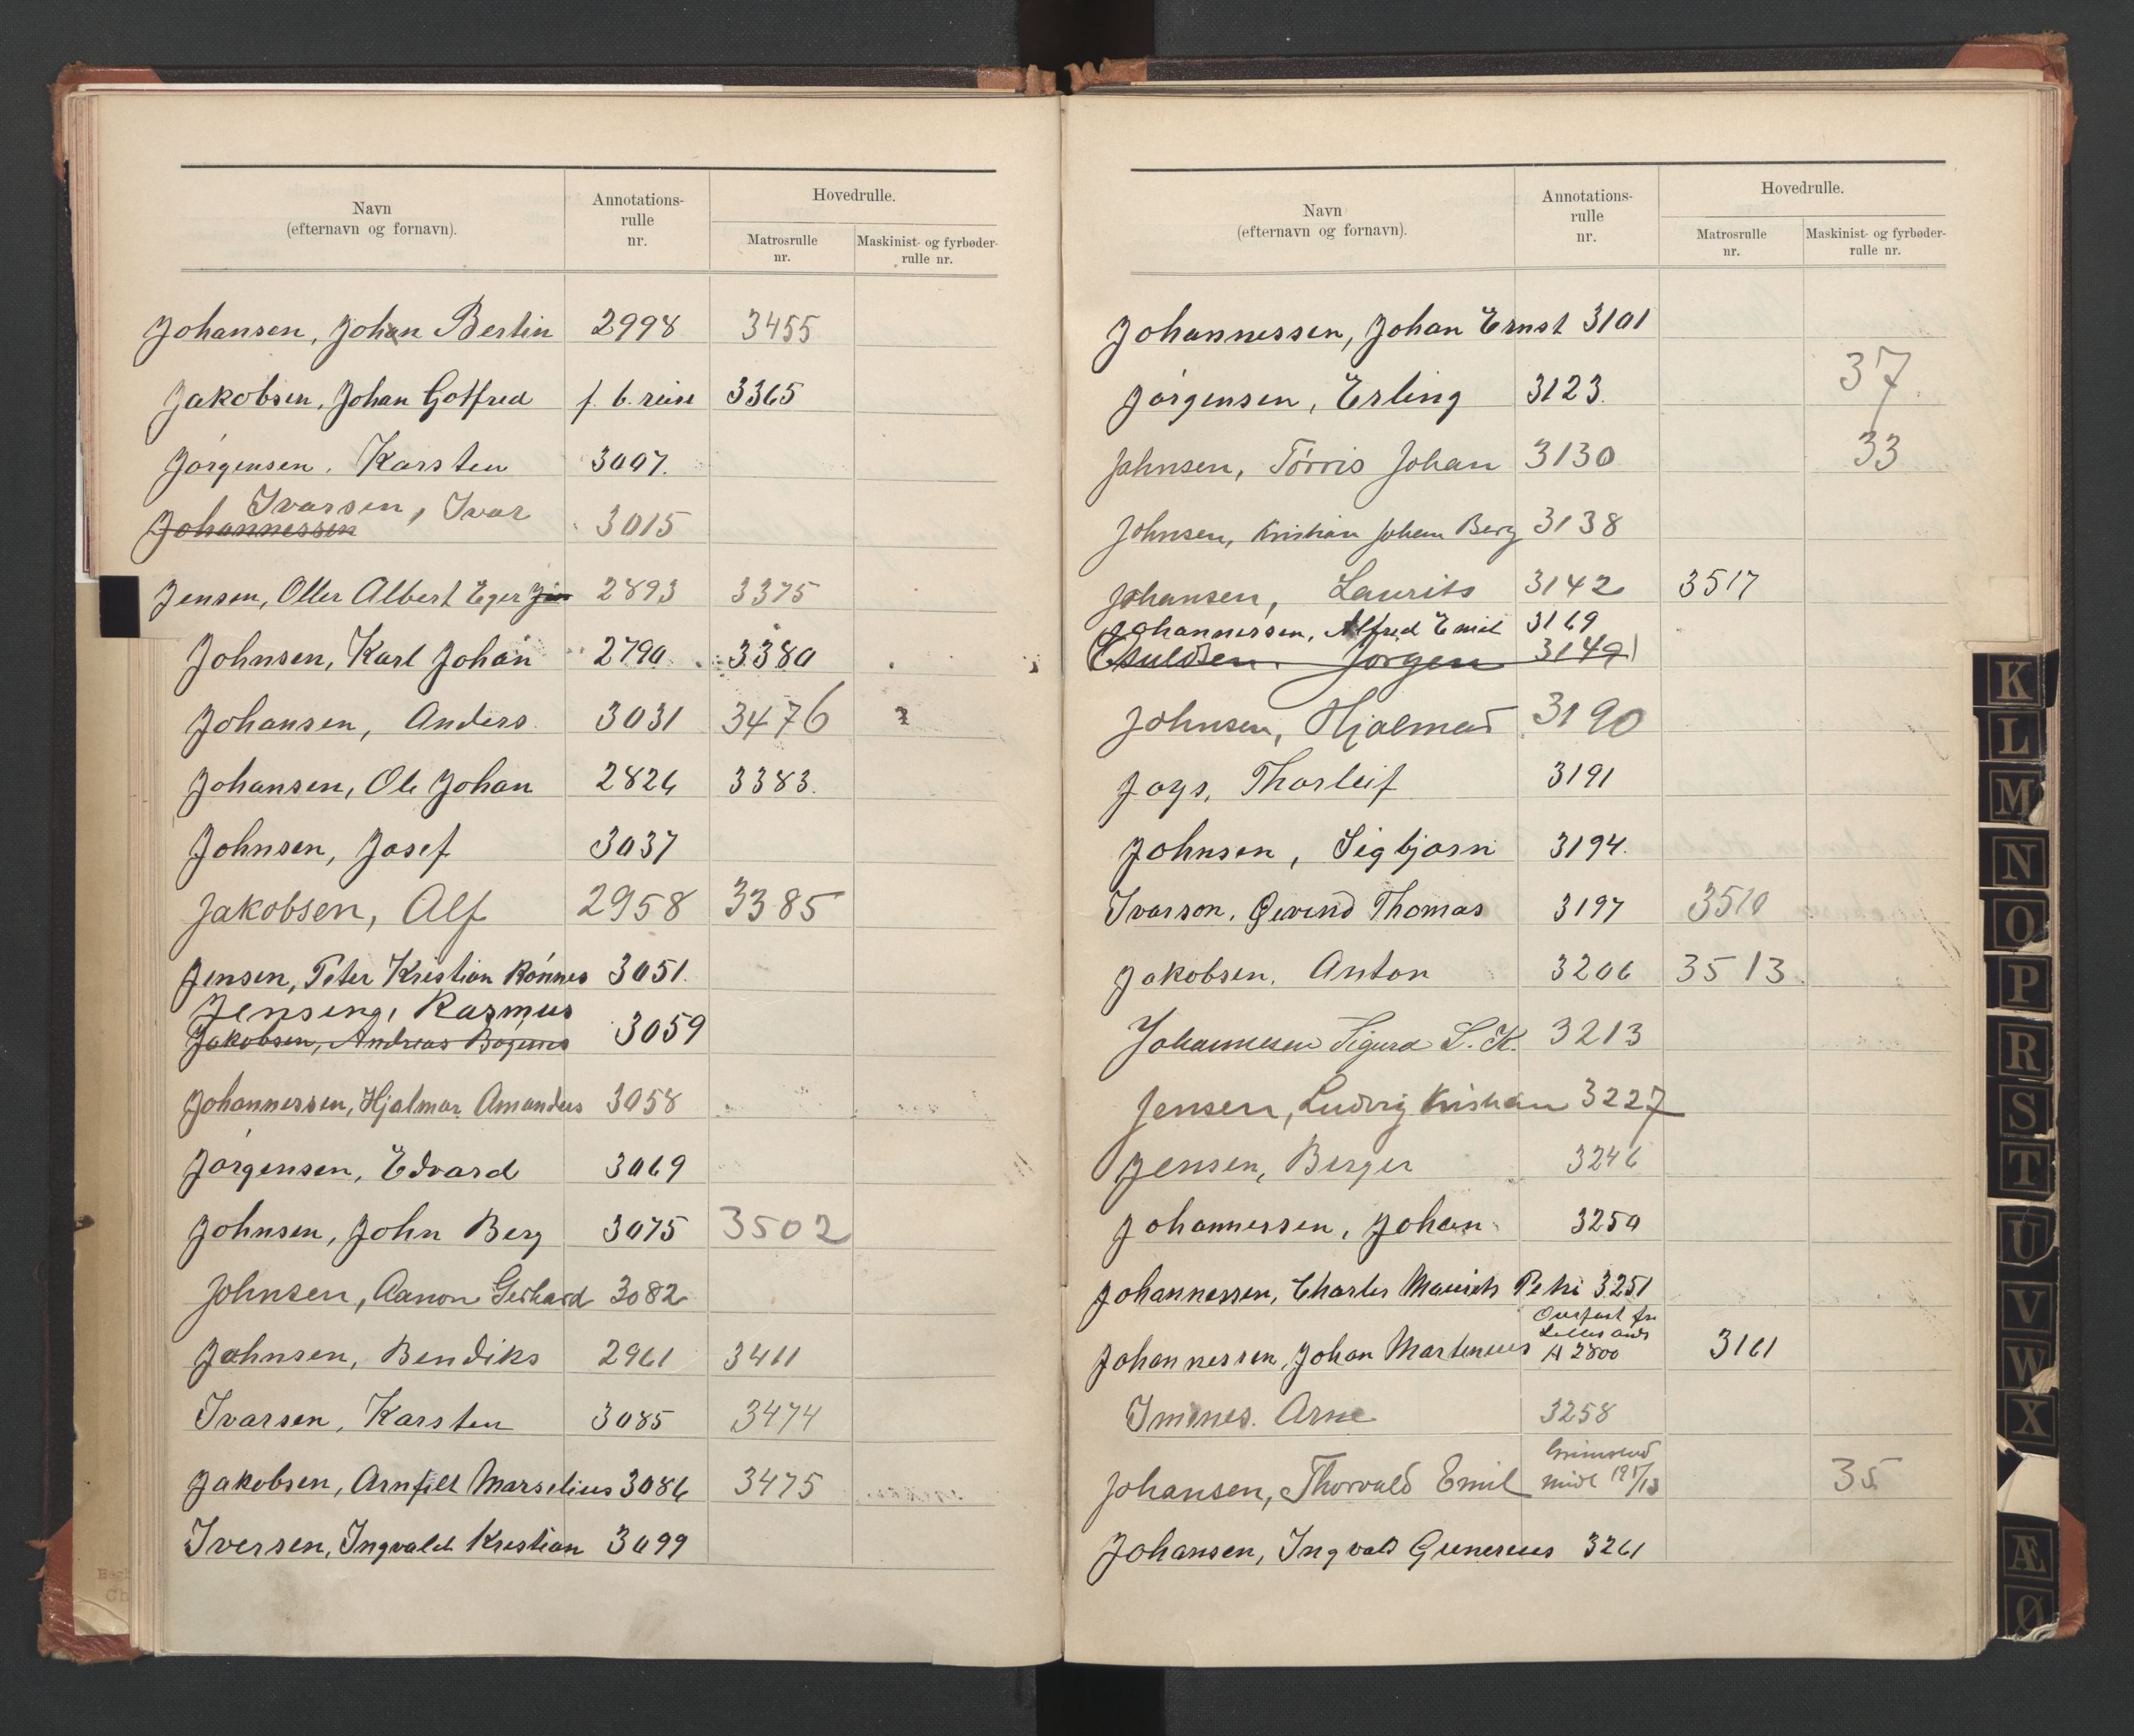 Navn
(efternavn og fornavn).
Annotations-
rulle
nr.
Hovedrulle.
Matrosrulle
nr.
Maskinist- og fyrbøder-
rulle nr.
Johansen, Johan Bertin 2998 3455
Jakobsen, Johan Gotfred f. b. reise 3365
Jørgensen, Karsten 3007.
Ivarsen, Ivar
Johannessen 3015
Jensen, Oller Albert Eger 2893 3375
Johnsen, Karl Johan 2790 3380
Johansen, Anders 3031 3476
Johansen, Ole Johan 2826 3383.
Johnsen, Josef 3037
Jakobsen, Alf 2958 3385
Jensen, Peter Kristian Rønnes 3051.
Jensing, Rasmus
Jakobsen, Andreas 3059
Johannessen, Hjalmar Amandus 3058
Jørgensen, Edvard 3069
Johnsen, John Berg 3075 3502
Johnsen, Aanon Gerhard 3082
Johnsen, Bendiks 2961 3411
Ivarsen, Karsten 3085 3474
Jakobsen, Arnfilt Marselius 3086 3475
Iversen, Ingvald Kristian 3099
Navn
(efternavn og fornavn).
Annotations-
rulle
nr.
Hovedrulle.
Matrosrulle
nr.
Maskinist- og fyrbøder-
rulle nr.
Johannessen, Johan Ernst 3101
Jørgensen, Erling 3123. 37
Johnsen, Tørris Johan 3130 33
Johnsen, Kristian Johan Berg 3138
Johansen, Laurits 3142 3517
Johannessen, Alfred Emil 3169
Jørgen 3149
Johnsen, Hjalmar 3190
Joys, Thorleif 3191
Johnsen, Sigbjørn 3194.
Ivarson, Øivind Thomas 3197 3510
Jakobsen, Anton 3206 3513
Johannesen Sigurd L. K. 3213
Jensen, Ludvig Kristian 3227
Jensen, Berger 3246
Johannessen, Johan 3250
Johannessen, Charles Mauritz Petri 3251
Overført fra
Lillesand
Johannessen, Johan Martinius A 2800 3161
Imenes. Arne 3258
Grimstad
Johansen, Thorvald Emil midl 19 5/13 35
Johansen, Ingvald Gunerius 3261
K
L
M
N
O
P
R
S
T
U
V
W
X
Æ
Ø